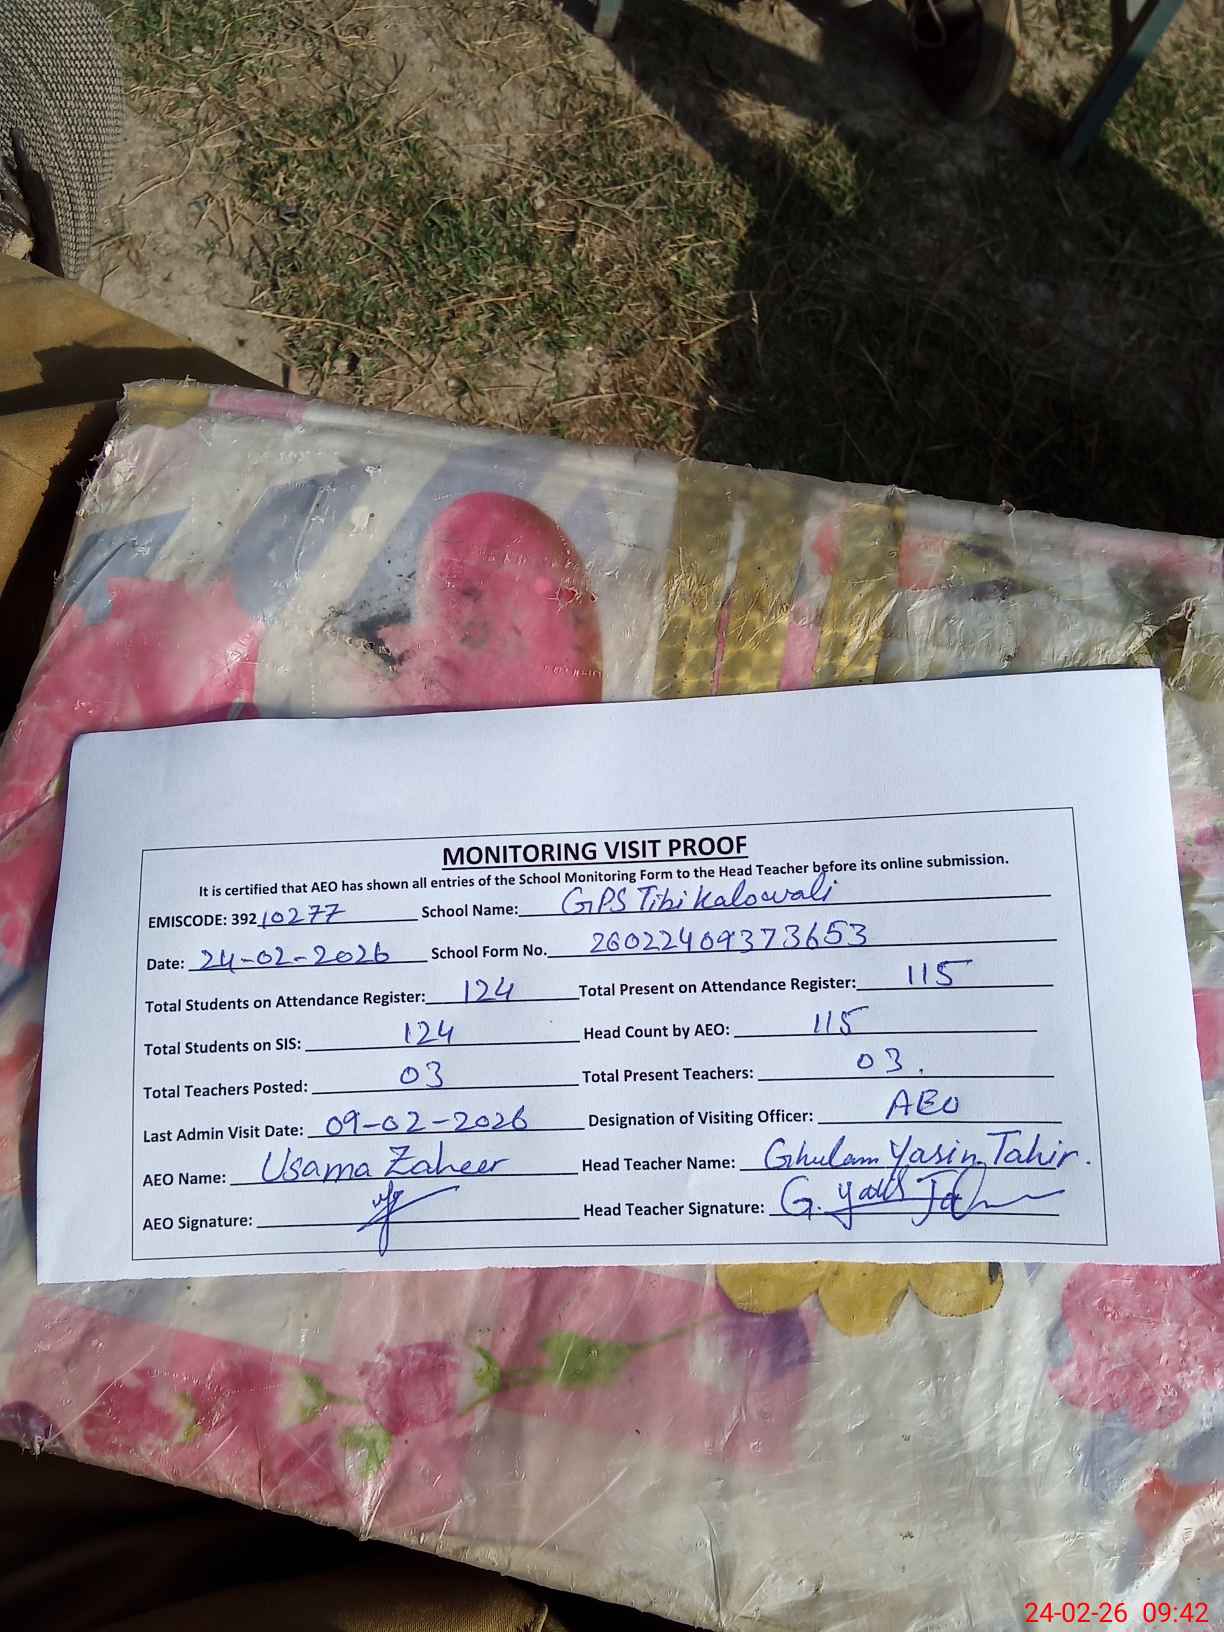 MONITORING VISIT PROOF
It is certified that AEO has shown all entries of the School Monitoring Form to the Head Teacher before its online submission.
EMISCODE: 39210277 School Name: GPS Tibi Kalowali
Date: 24-02-2026 School Form No. 26022409373653
Total Students on Attendance Register: 124 Total Present on Attendance Register: 115
Total Students on SIS: 124 Head Count by AEO: 115
Total Teachers Posted: 03 Total Present Teachers: 03.
Last Admin Visit Date: 09-02-2026 Designation of Visiting Officer: AEO
AEO Name: Usama Zaheer Head Teacher Name: Ghulam Yasin Tahir.
AEO Signature: Head Teacher Signature: G.
24-02-26 09:42